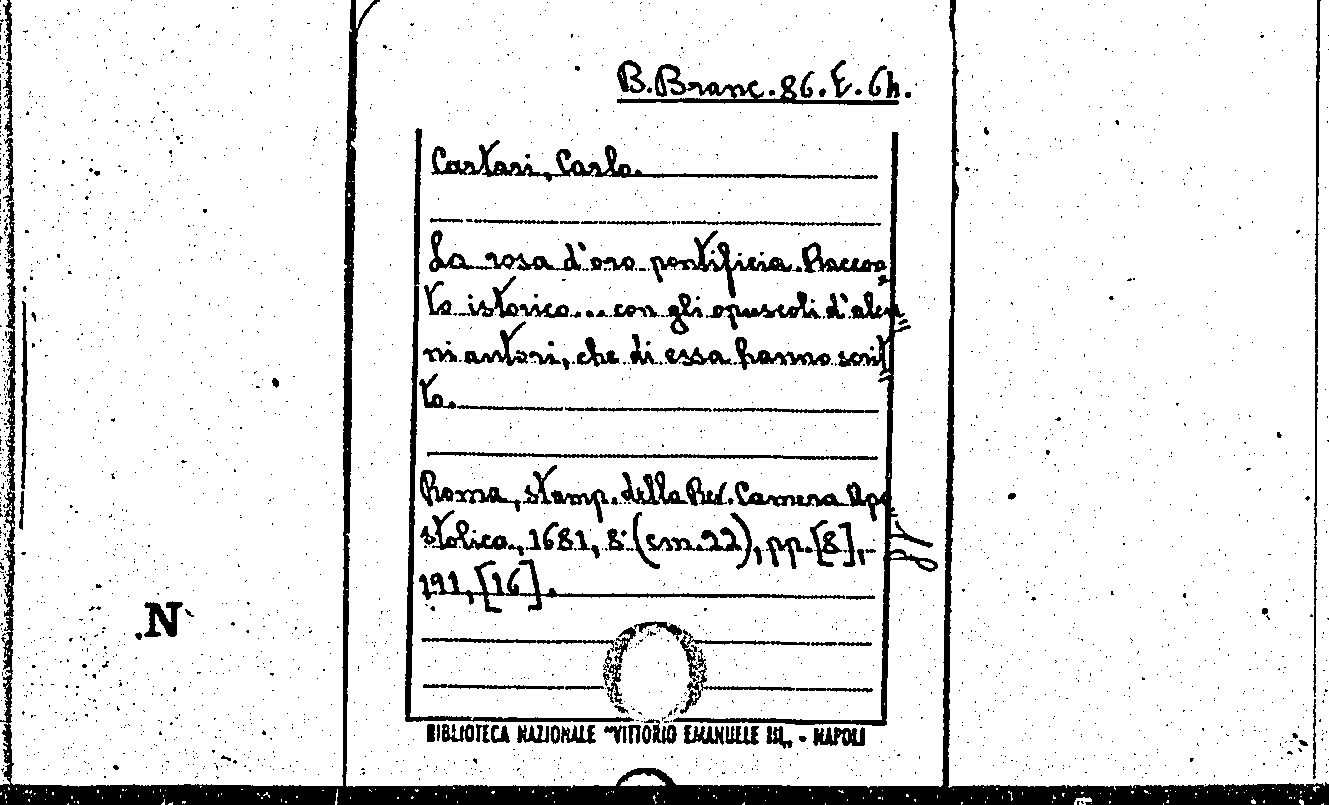 B. Branc. 86. E. 6h.
Cartari, Carlo.
La rosa d'oro pontificia. Raccon=
to istorico... con gli opuscoli d'alcu=
ni autori, che di essa hanno scrit=
to.
Roma, stamp. della Rev. Camera Apo=
stolica, 1681, 8° (cm. 22), pp. [8], -
191, [16].
N
BIBLIOTECA NAZIONALE "VITTORIO EMANUELE III„ - NAPOLI